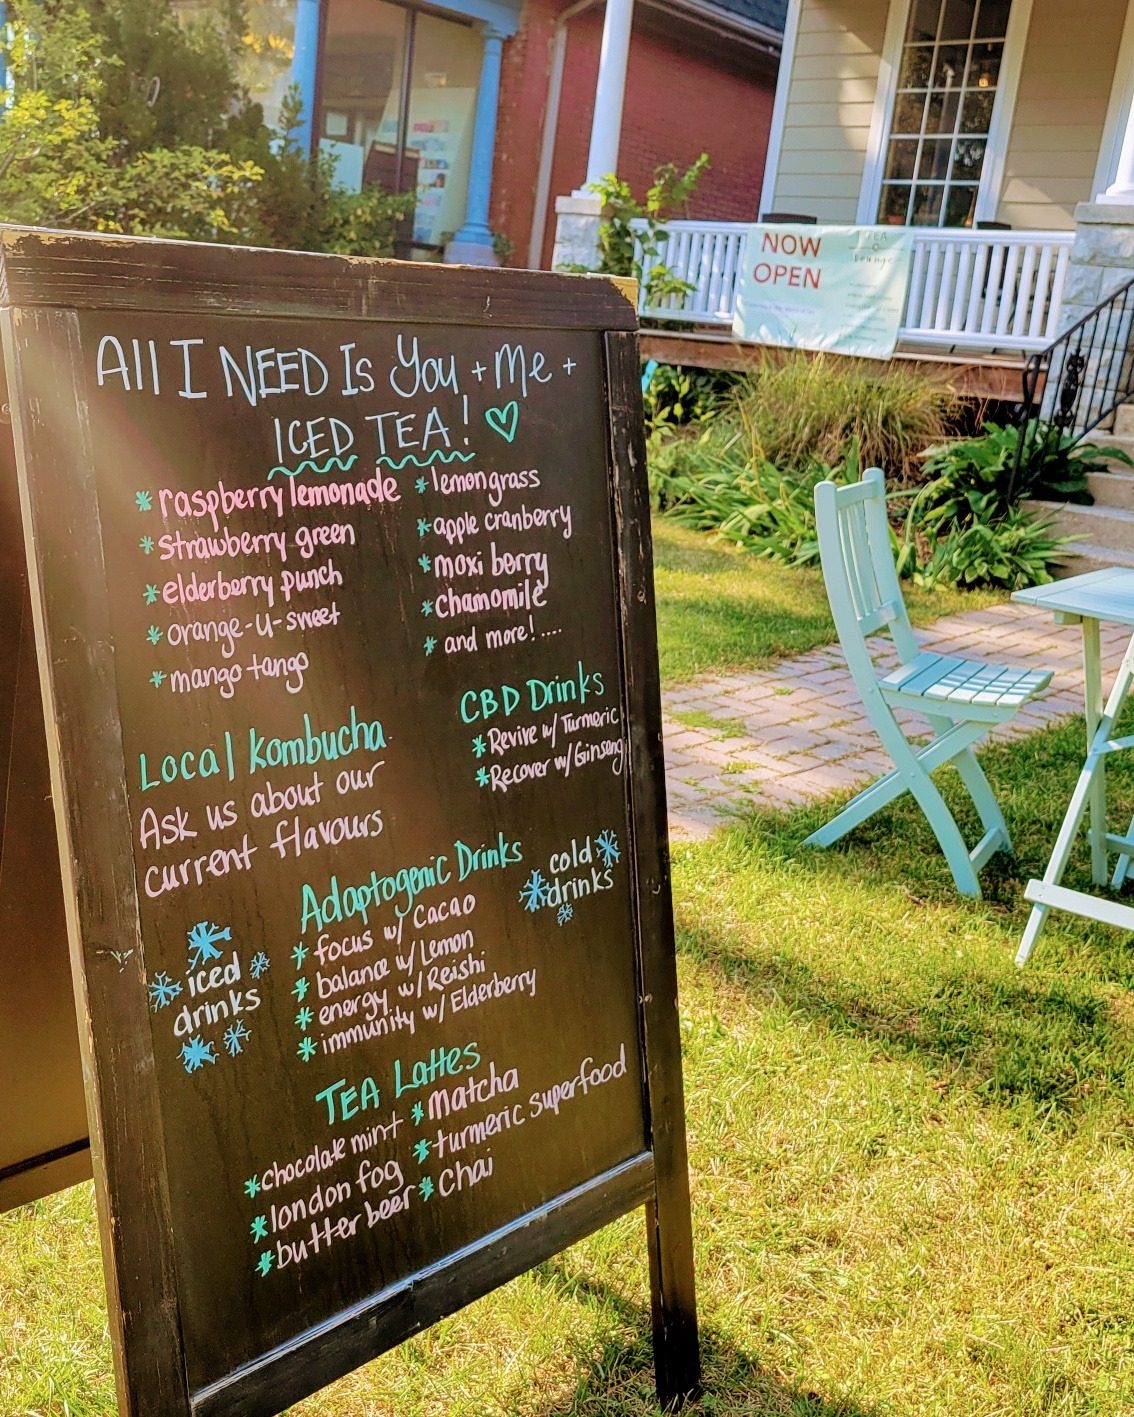 All I NEED Is You + Me +
ICED TEA!
* raspberry lemonade
* strawberry green
* elderberry punch
* orange-u-sweet
* mango tango
* lemongrass
* apple cranberry
* moxi berry
* chamomile
* and more! ....
Local kombucha
Ask us about our
current flavours
CBD Drinks
* Revive w/ Turmeric
* Recover w/ Ginseng
Adaptogenic Drinks
* focus w/ Cacao
* balance w/ Lemon
* energy w/ Reishi
* immunity w/ Elderberry
cold
drinks
iced
drinks
TEA Lattes
* chocolate mint
* london fog
* butter beer
* matcha
* turmeric superfood
* chai
NOW
OPEN
TEA
lounge